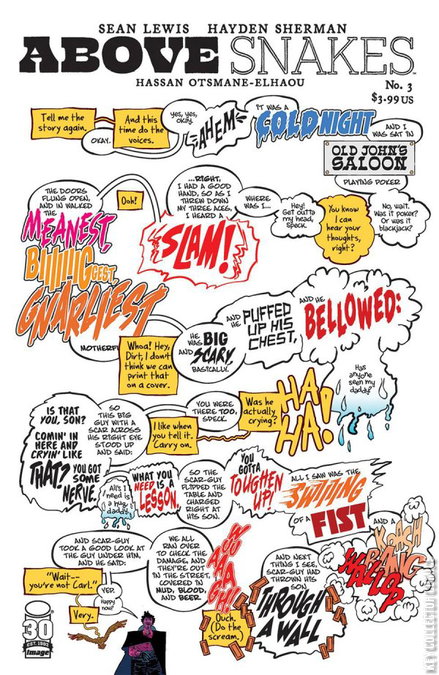 SEAN LEWIS HAYDEN SHERMAN
ABOVE SNAKES
HASSAN OTSMANE-ELHAOU
No. 3
$3.99 US
Tell me the
story again.
OKAY.
And this
time do the
voices.
Yes, yes,
okay.
AHEM
IT WAS A
COLD NIGHT
AND I
WAS SAT IN
OLD JOHN'S
SALOON
PLAYING POKER
No, wait.
Was it poker?
Or was it
blackjack?
You know
I can
hear your
thoughts,
right?
Hey!
Get outta
my head,
Speck.
WHERE
WAS I...
...RIGHT.
I HAD A GOOD
HAND, SO AS I
THREW DOWN
MY THREE ACES,
I HEARD A
SLAM!
Ooh!
THE DOORS
FLUNG OPEN,
AND IN WALKED
THE
MEANEST,
BIIIIIG
GEST,
GNARLIEST
MOTHERF
Whoa! Hey,
Dirt, I don't
think we can
print that
on a cover.
HE
WAS BIG
AND SCARY.
BASICALLY.
AND
HE
PUFFED
UP HIS
CHEST,
AND HE
BELLOWED:
Has
anyone
seen my
daddy?
HA
HA!
Was he
actually
crying?
YOU WERE
THERE TOO,
SPECK.
I like when
you tell it.
Carry on.
SO
THIS BIG
GUY WITH A
SCAR ACROSS
HIS RIGHT EYE
STOOD UP
AND SAID:
IS THAT
YOU, SON?
COMIN' IN
HERE AND
CRYIN' LIKE
THAT? YOU GOT
SOME
NERVE.
All I
need is
a hug,
daddy!
WHAT YOU
NEED IS A
LESSON.
SO THE
SCAR-GUY
FLIPPED THE
TABLE AND
CHARGED
RIGHT AT
HIS SON.
YOU
GOTTA
TOUGHEN
UP!
ALL I SAW WAS THE
SWITTING
OF A FIST
AND A
KRACH
BANG
WALLOP
AND NEXT
THING I SEE,
SCAR-GUY HAD
THROWN HIS
SON
THROUGH
A WALL
Ouch.
(Do the
scream.)
WE ALL
RAN OVER
TO CHECK THE
DAMAGE, AND
THEY'RE OUT
IN THE STREET,
COVERED IN
MUD, BLOOD,
AND BEER.
AND SCAR-GUY
TOOK A GOOD LOOK
AT THE GUY UNDER HIM,
AND HE SAID:
"Wait--
you're not Carl."
YEP.
Happy
now?
Very.
30
image